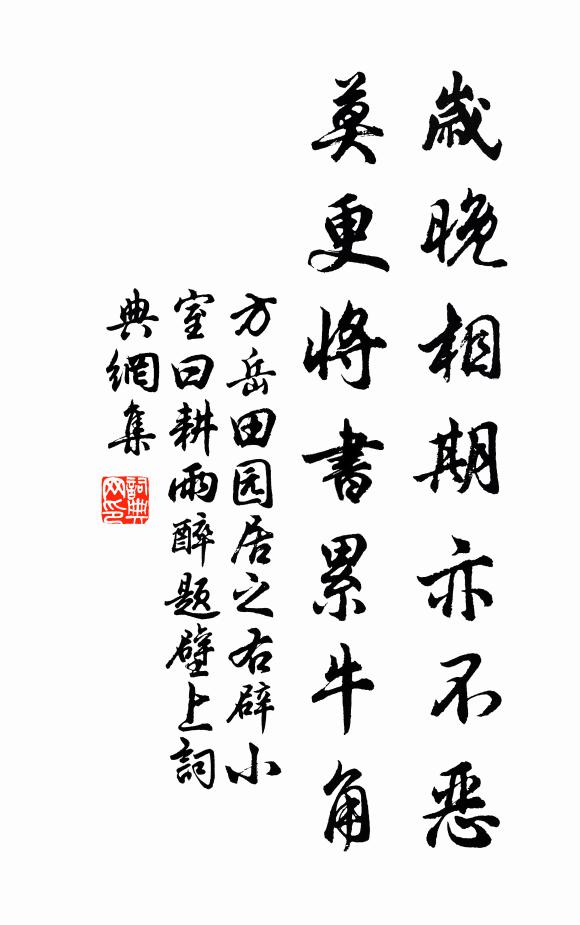 歲晚相期亦不惡
莫更將書累牛角
方岳田园居之右辟小
室曰耕雨醉题壁上詞
典網集
詞典
网印